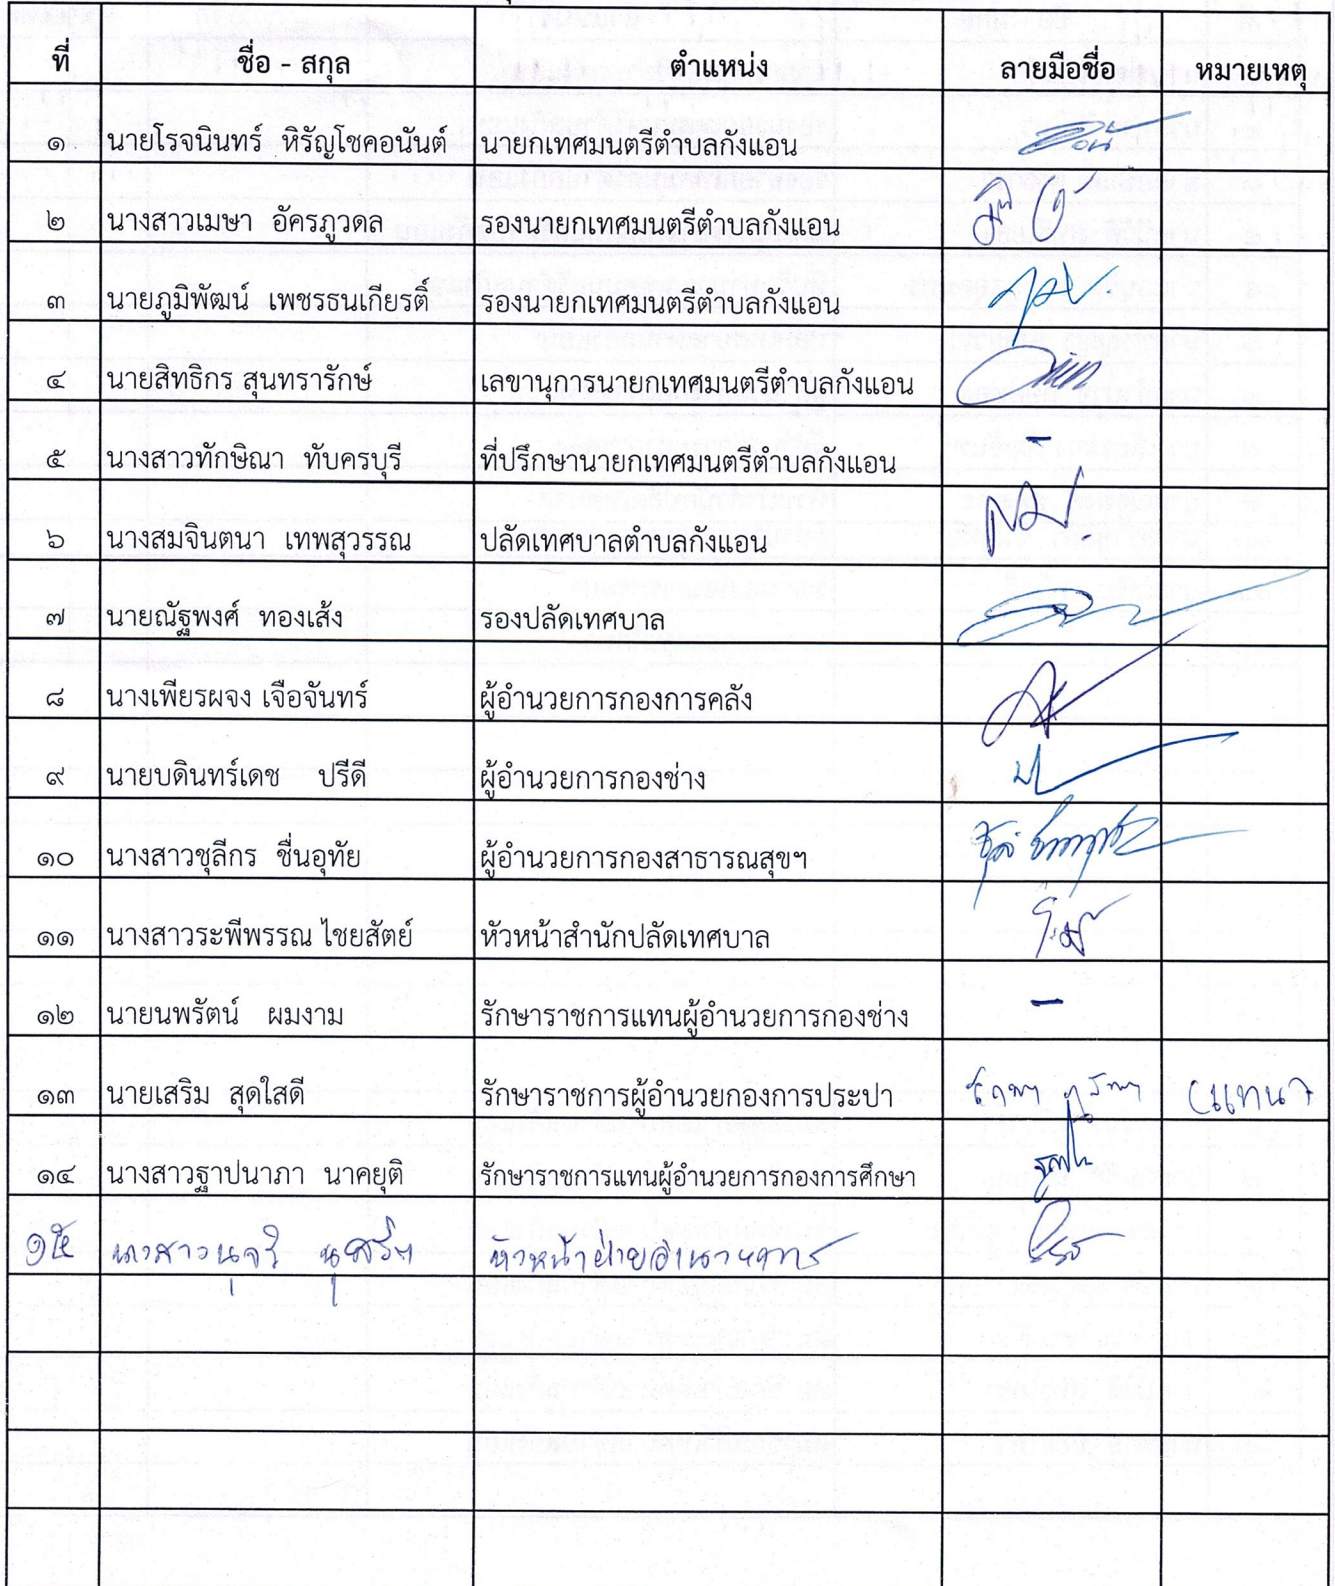 ที่ ชื่อ - สกุล ตำแหน่ง ลายมือชื่อ หมายเหตุ
๑ นายโรจนินทร์ หิรัญโชคอนันต์ นายกเทศมนตรีตำบลกังแอน
๒ นางสาวเมษา อัครภูวดล รองนายกเทศมนตรีตำบลกังแอน
๓ นายภูมิพัฒน์ เพชรธนเกียรติ์ รองนายกเทศมนตรีตำบลกังแอน
๔ นายสิทธิกร สุนทรารักษ์ เลขานุการนายกเทศมนตรีตำบลกังแอน
๕ นางสาวทักษิณา ทับครบุรี ที่ปรึกษานายกเทศมนตรีตำบลกังแอน -
๖ นางสมจินตนา เทพสุวรรณ ปลัดเทศบาลตำบลกังแอน
๗ นายณัฐพงศ์ ทองเส้ง รองปลัดเทศบาล
๘ นางเพียรผจง เจือจันทร์ ผู้อำนวยการกองการคลัง
๙ นายบดินทร์เดช ปรีดี ผู้อำนวยการกองช่าง
๑๐ นางสาวชุลีกร ชื่นอุทัย ผู้อำนวยการกองสาธารณสุขฯ
๑๑ นางสาวระพีพรรณ ไชยสัตย์ หัวหน้าสำนักปลัดเทศบาล
๑๒ นายนพรัตน์ ผมงาม รักษาราชการแทนผู้อำนวยการกองช่าง -
๑๓ นายเสริม สุดใสดี รักษาราชการผู้อำนวยกองการประปา (แทน)
๑๔ นางสาวฐาปนาภา นาคยุติ รักษาราชการแทนผู้อำนวยการกองการศึกษา
๑๕ นางสาวนุจรี หัวหน้าฝ่ายอำนวยการ